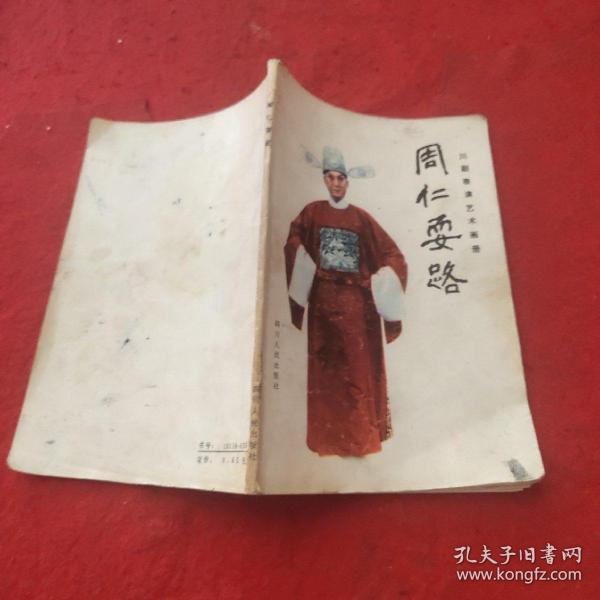 川剧表演艺术画册
周仁耍路
四川人民出版社
周仁耍路
四川人民出版社
书号:
定价:
孔夫子旧书网
www.kongfz.com